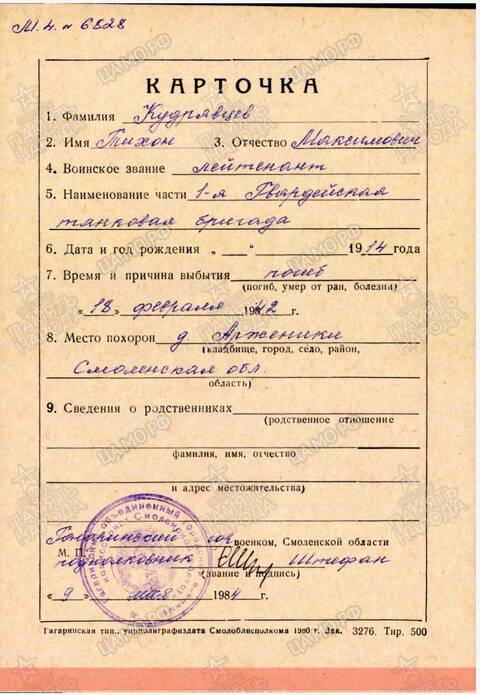 М.н. № 6828
КАРТОЧКА
1. Фамилия Кудрявцев
2. Имя Тихон 3. Отчество Максимович
4. Воинское звание лейтенант
5. Наименование части 1-я Гвардейская
танковая бригада
6. Дата и год рождения „ “ 1914 года
7. Время и причина выбытия погиб
(погиб, умер от ран, болезни)
„18“ февраля 1942 г.
8. Место похорон д. Арженики
(кладбище, город, село, район,
Смоленская обл.
область)
9. Сведения о родственниках
(родственное отношение
фамилия, имя, отчество
и адрес местожительства)
Гагаринский военком, Смоленской области
М. П.
подполковник Штефан
(звание и подпись)
„9“ мая 1984 г.
Гагаринская тип., упрполиграфиздата Смолоблисполкома 1980 г. Зак. 3276. Тир. 500